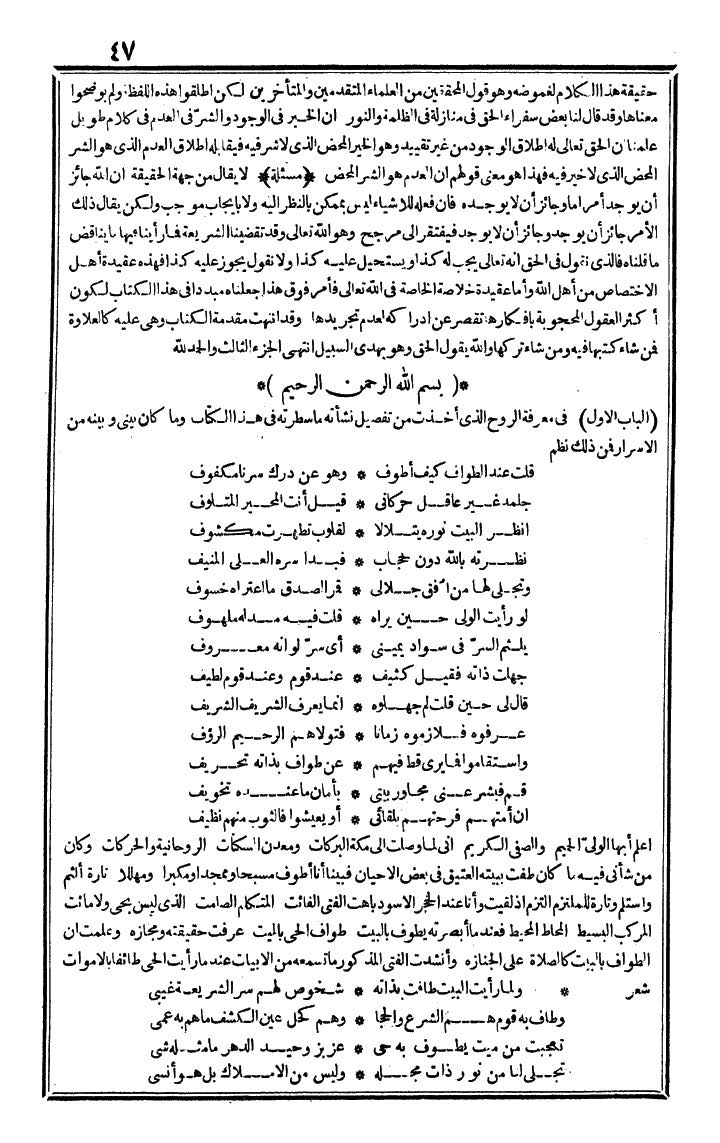 ٤٧
حقيقة هذا الكلام لغموضه وهو قول المحققين من العلماء المتقدمين والمتأخرين لكن اطلقوا هذه اللفظة ولم يوضحوا
معناها وقد قال لنا بعض سفراء الحق فى منازلة فى الظلمة والنور ان الخير فى الوجود والشر فى العدم فى كلام طويل
علمنا ان الحق تعالى له اطلاق الوجود من غير تقييد وهو الخير المحض الذى لا شر فيه فيقابله اطلاق العدم الذى هو الشر
المحض الذى لا خير فيه فهذا هو معنى قولهم ان العدم هو الشر المحض ﴿مسئلة﴾ لا يقال من جهة الحقيقة ان الله جائز
أن يوجد أمرا ما وجائز أن لا يوجده فان فعله للاشياء ليس بممكن بالنظر اليه ولا بايجاب موجب ولكن يقال ذلك
الأمر جائز أن يوجد وجائز أن لا يوجد فيفتقر الى مرجح وهو الله تعالى وقد تقضينا الشريعة فما رأينا فيها ما يناقض
ما قلناه فالذى نقول فى الحق انه تعالى يجب له كذا ويستحيل عليه كذا ولا نقول يجوز عليه كذا فهذه عقيدة أهل
الاختصاص من أهل الله وأما عقيدة خلاصة الخاصة فى الله تعالى فأمر فوق هذا جعلناه مبددا فى هذا الكتاب لكون
أكثر العقول المحجوبة بافكارها تقصر عن ادراكه لعدم تجريدها وقد انتهت مقدمة الكتاب وهى عليه كالعلاوة
فن شاء كتبها فيه ومن شاء تركها والله يقول الحق وهو يهدى السبيل انتهى الجزء الثالث والحمد لله
*( بسم الله الرحمن الرحيم )*
(الباب الاول) فى معرفة الروح الذى أخذت من تفصيل نشأته ما سطرته فى هذا الكتاب وما كان بينى وبينه من
الاسرار فن ذلك نظم
قلت عند الطواف كيف أطوف * وهو عن درك سرنا مكفوف
جلمد غير عاقل حركاتى * قيل أنت المحير المتلوف
انظر البيت نوره يتلالا * لقلوب تطهرت مكشوف
نظرته بالله دون حجاب * فبدا سره العلى المنيف
وتجلى لها من افق جلالى * قمر الصدق ما اعتراه خسوف
لو رأيت الولى حين يراه * قلت فيه مدله ملهوف
يلثم السر فى سواد يمينى * أى سر لو انه معروف
جهلت ذاته فقيل كثيف * عند قوم وعند قوم لطيف
قال لى حين قلت لم جهلوه * انما يعرف الشريف الشريف
عرفوه فلازموه زمانا * فتولاهم الرحيم الرؤف
واستقاموا فما يرى قط فيهم * عن طواف بذاته تحريف
قم فبشر عنى مجاور بيتى * بأمان ما عنده تخويف
ان أمتهم فرحتهم بلقائى * أو يعيشوا فالثوب منهم نظيف
اعلم أيها الولى الحميم والصفى الكريم انى لما وصلت الى مكة البركات ومعدن السكنات الروحانية والحركات وكان
من شأنى فيه ما كان طفت ببيته العتيق فى بعض الاحيان فبينا أنا أطوف مسبحا وممجدا ومكبرا ومهللا تارة ألثم
واستلم وتارة للملتزم التزم اذ لقيت وأنا عند الحجر الاسود باهت الفتى الفائت المتكلم الصامت الذى ليس بحى ولا مائت
المركب البسيط المحاط المحيط فعندما أبصرته يطوف بالبيت طواف الحى بالميت عرفت حقيقته ومجازه وعلمت ان
الطواف بالبيت كالصلاة على الجنازه وأنشدت الفتى المذكور ما تسمعه من الابيات عند ما رأيت الحى طائفا بالاموات
شعر * ولما رأيت البيت طافت بذاته * شخوص لهم سر الشريعة غيبى
وطاف به قوم هم الشرع والحجا * وهم كحل عين الكشف ما هم به عمى
تعجبت من ميت يطوف به حى * عزيز وحيد الدهر ما مثله شى
تجلى لنا من نور ذات مجله * وليس من الاملاك بل هو أنسى